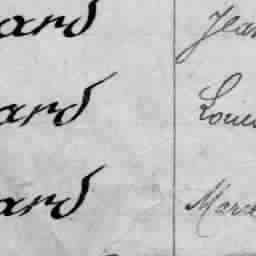 ard Jean
ard Louis
ard Marce